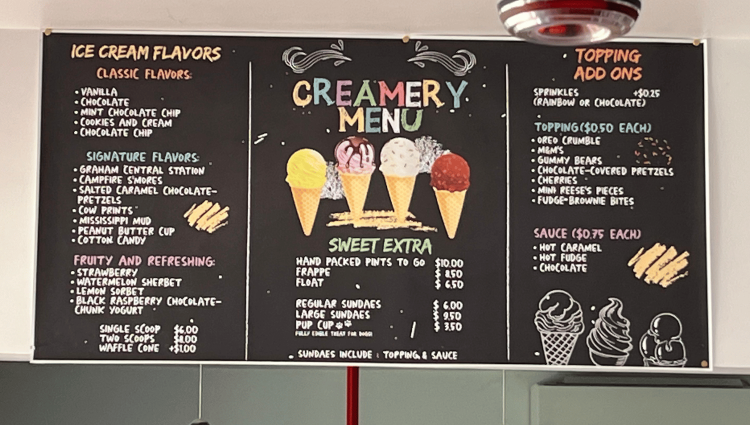 ICE CREAM FLAVORS
CLASSIC FLAVORS:
• VANILLA
• CHOCOLATE
• MINT CHOCOLATE CHIP
• COOKIES AND CREAM
• CHOCOLATE CHIP
SIGNATURE FLAVORS:
• GRAHAM CENTRAL STATION
• CAMPFIRE S'MORES
• SALTED CARAMEL CHOCOLATE-
PRETZELS
• COW PRINTS
• MISSISSIPPI MUD
• PEANUT BUTTER CUP
• COTTON CANDY
FRUITY AND REFRESHING:
• STRAWBERRY
• WATERMELON SHERBET
• LEMON SORBET
• BLACK RASPBERRY CHOCOLATE-
CHUNK YOGURT
SINGLE SCOOP $6.00
TWO SCOOPS $8.00
WAFFLE CONE +$1.00
CREAMERY
MENU
SWEET EXTRA
HAND PACKED PINTS TO GO $10.00
FRAPPE $ 8.50
FLOAT $ 6.50
REGULAR SUNDAES $ 6.00
LARGE SUNDAES $ 9.50
PUP CUP $ 3.50
FULLY EDIBLE TREAT FOR DOGS!
• SUNDAES INCLUDE : TOPPING & SAUCE
TOPPING
ADD ONS
SPRINKLES +$0.25
(RAINBOW OR CHOCOLATE)
TOPPING ($0.50 EACH)
• OREO CRUMBLE
• M&M'S
• GUMMY BEARS
• CHOCOLATE-COVERED PRETZELS
• CHERRIES
• MINI REESE'S PIECES
• FUDGE-BROWNIE BITES
SAUCE ($0.75 EACH)
• HOT CARAMEL
• HOT FUDGE
• CHOCOLATE